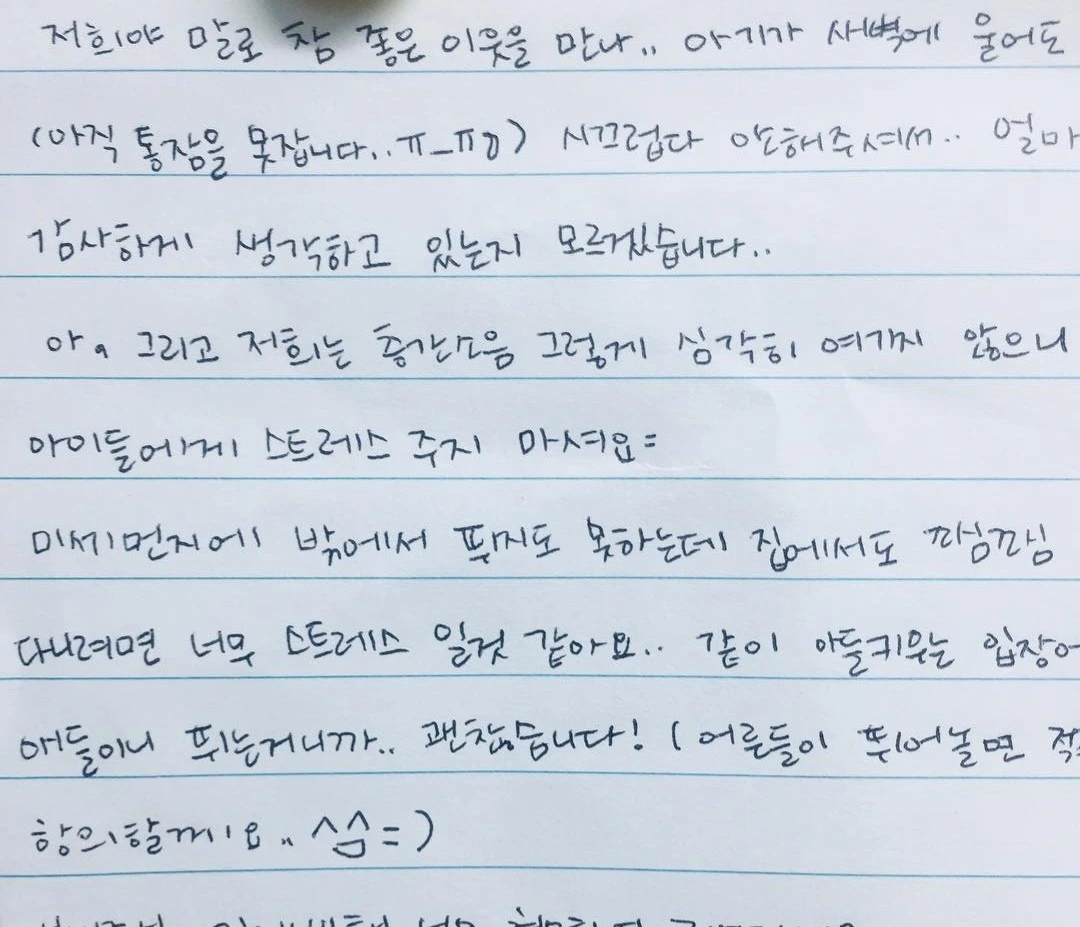 저희야 말로 참 좋은 이웃을 만나.. 아기가 새벽에 울어도
(아직 통잠을 못잡니다..ㅠ_ㅠ;;) 시끄럽다 안해주셔서.. 얼마
감사하게 생각하고 있는지 모르겠습니다..
아. 그리고 저희는 층간소음 그렇게 심각히 여기지 않으니
아이들에게 스트레스 주지 마셔요=
미세먼지에 밖에서 뛰지도 못하는데 집에서도 깨심깨심
다니려면 너무 스트레스 일것 같아요.. 같이 아들키우는 입장에
애들이니 뛰는거니까.. 괜찮습니다! (어른들이 뛰어놀면
항의할께요.. ^^=)